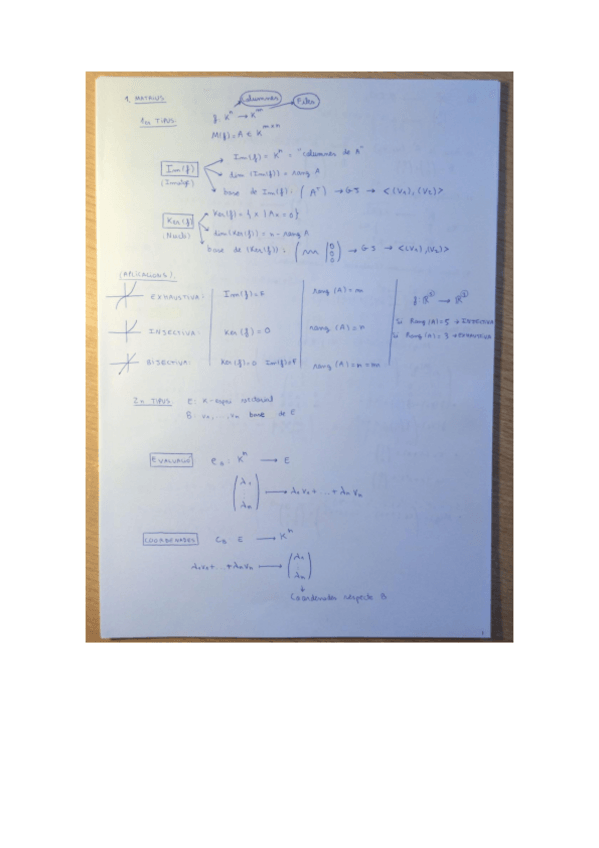 1. MATRIUS
Columnes Files
1er TIPUS: f: Kⁿ → Kᵐ
M(f) = A ∈ K^(m×n)
Im(f) (Imatge)
Im(f) = Kⁿ = "columnes de A"
dim (Im(f)) = rang A
base de Im(f): (Aᵀ) → GS → <(v₁),(v₂)>
Ker(f) (Nucli)
Ker(f) = {x | Ax = 0}
dim(Ker(f)) = n - rang A
base de (Ker(f)): ( | 0 0 0) → GS → <(v₁),(v₂)>
(APLICACIONS).
EXHAUSTIVA: Im(f) = F rang (A) = m
f: R⁵ → R³
INJECTIVA: Ker(f) = 0 rang (A) = n
Si Rang(A) = 5 → INJECTIVA
Si Rang(A) = 3 → EXHAUSTIVA
BIJECTIVA: Ker(f) = 0 Im(f) = F rang (A) = n = m
2n TIPUS E: K-espai vectorial
B: v₁, ..., vₙ base de E
AVALUACIÓ e_B: Kⁿ → E
(λ₁ ⋮ λₙ) → λ₁v₁ + ... + λₙvₙ
COORDENADES C_B E → Kⁿ
λ₁v₁ + ... + λₙvₙ → (λ₁ ⋮ λₙ)
↓
Coordenades respecte B
1